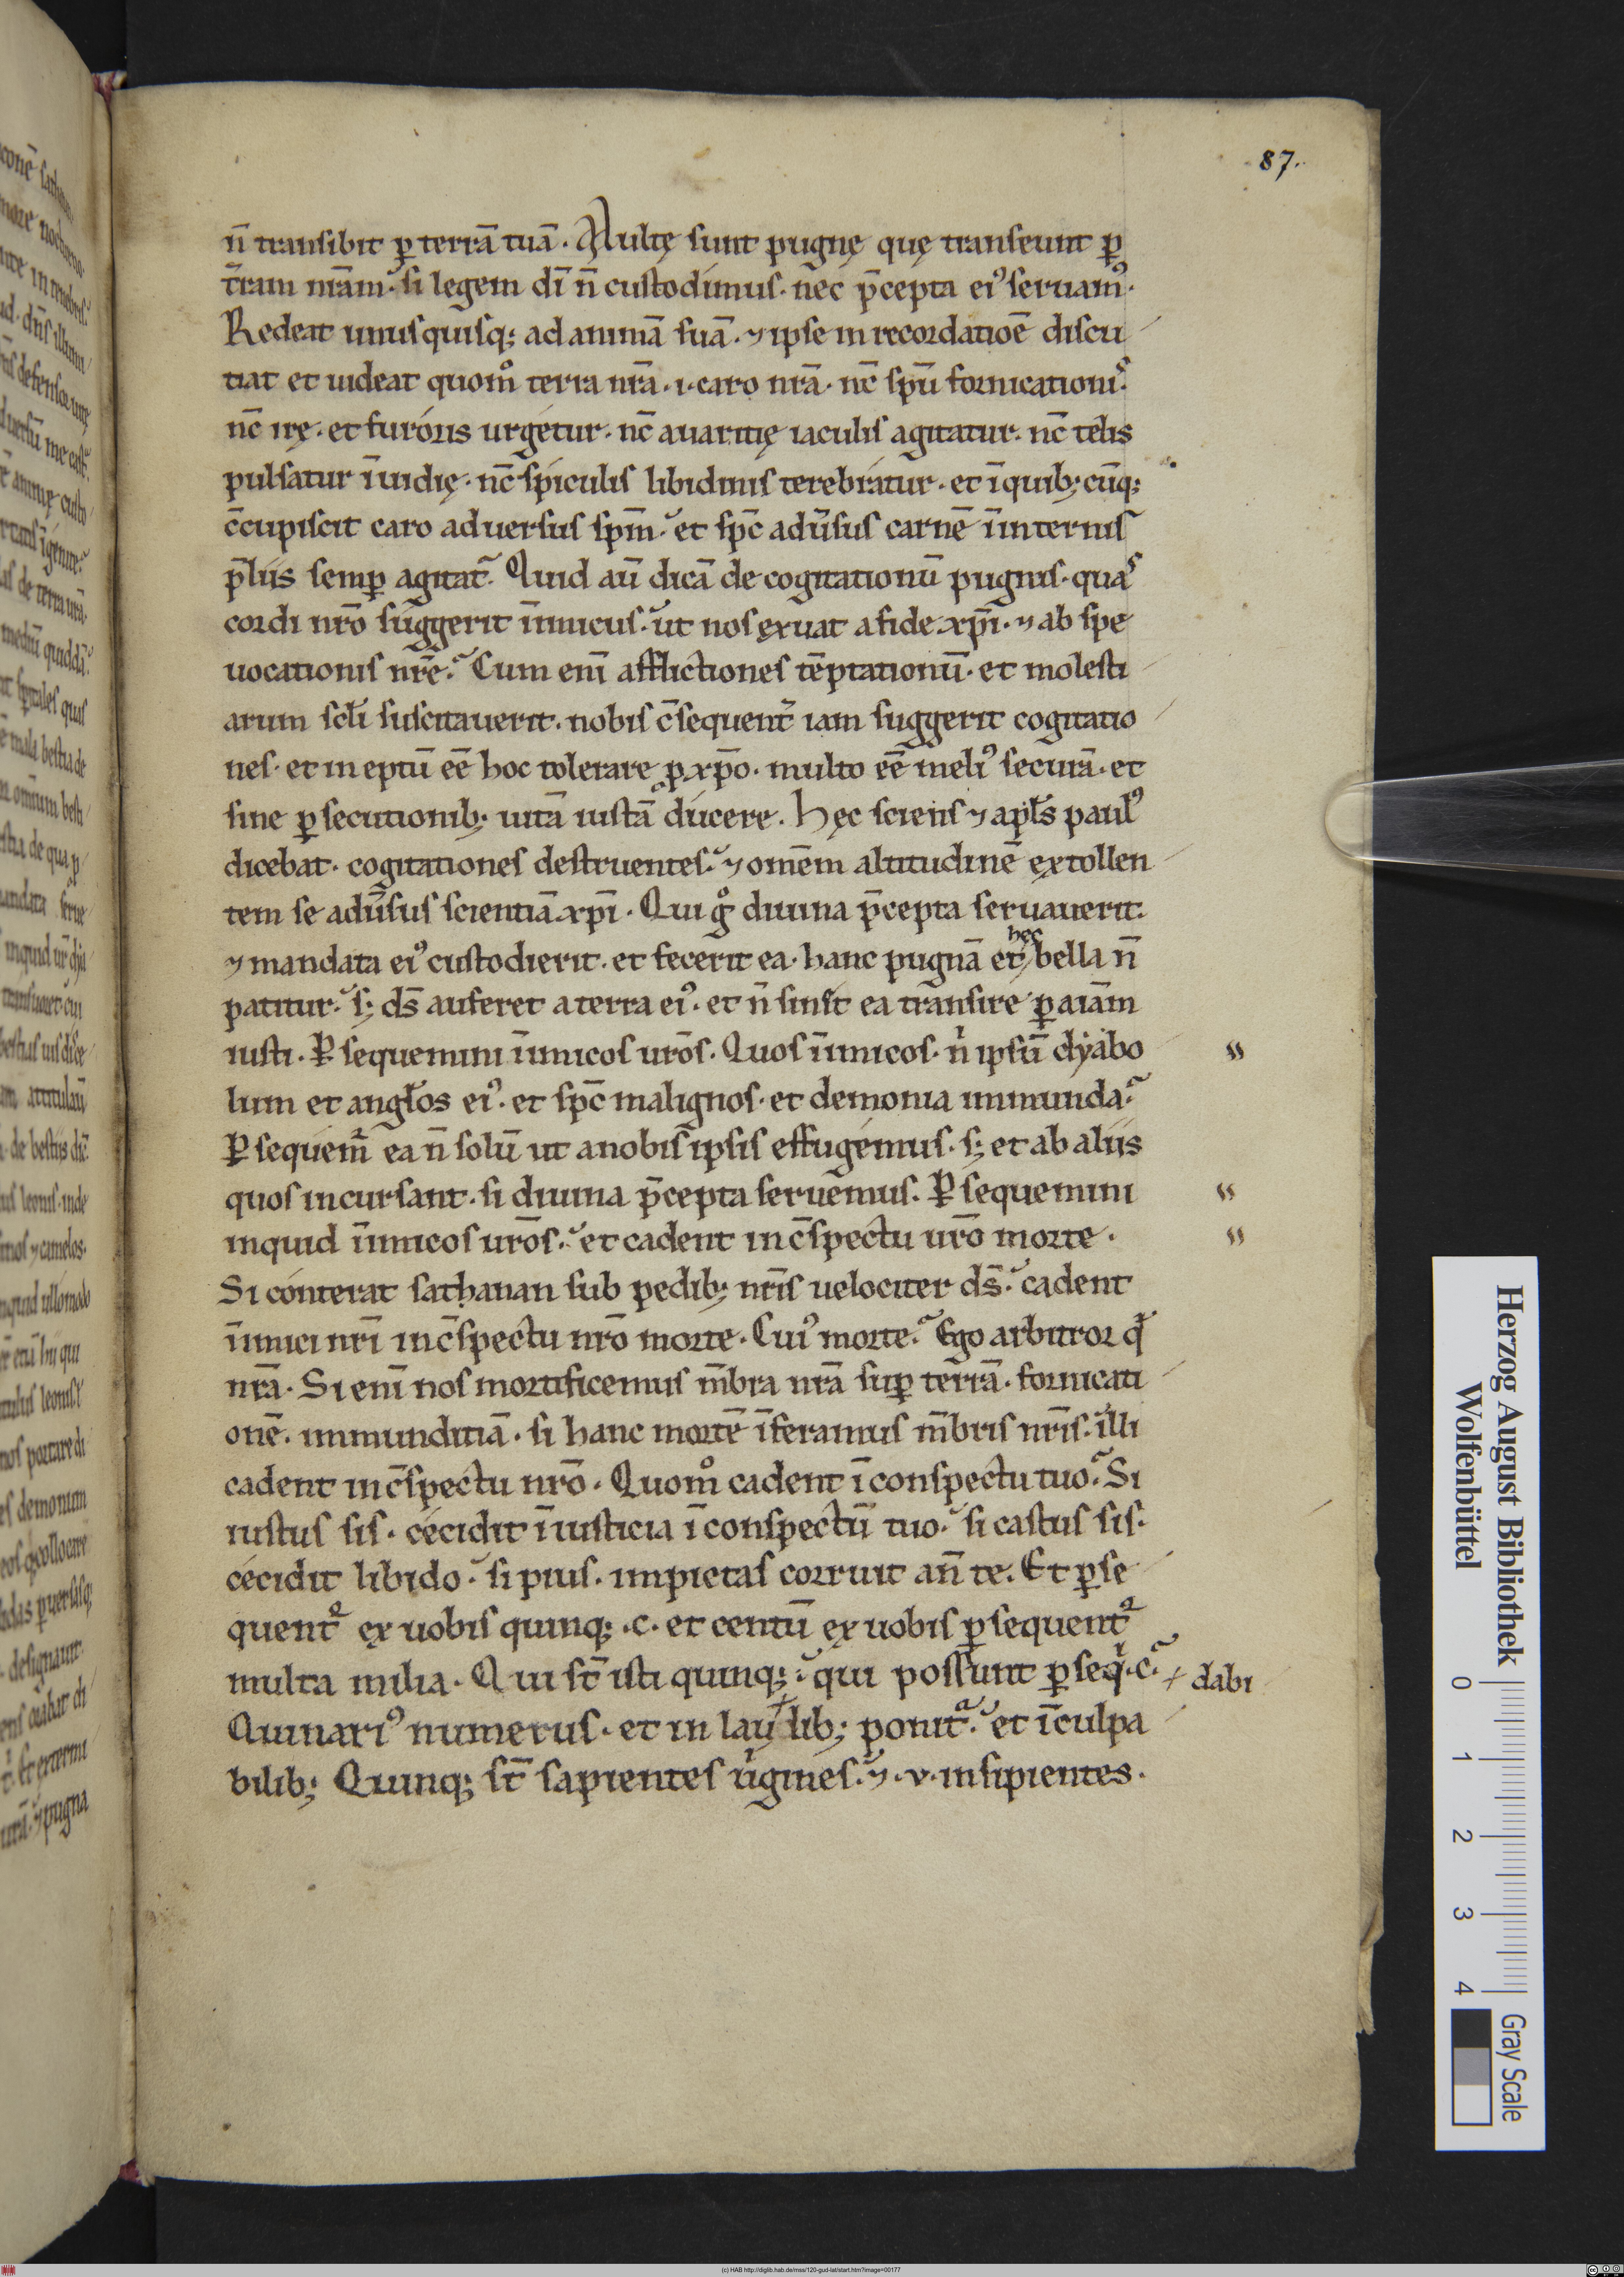 87.
n̄ transibit ꝑ terrā tuā. Multę sunt pugnę quę transeunt ꝑ
t̄ram nrām. si legem dī n̄ custodimus. nec p̄cepta eiꝰ seruamꝰ.
Redeat unusquisq; ad animā suā. ⁊ ipse in recordatioē discu
tiat et uideat quomͦ terra nrā .i. caro nrā. nc̄ spū fornicationis.
nc̄ irę. et furoris urgetur. nc̄ auaritię iaculis agitatur. nc̄ telis
pulsatur īuidię. nc̄ spiculis libidinis terebratur. et ī quib; cūq;
c̄cupiscit caro aduersus spm̄. et spc̄ adūsus carnē ī internis
p̄liis semꝑ agitat᷑. Quid aū dicā de cogitationū pugnis. quas
cordi nrō suggerit inimicus. ut nos exuat a fide xp̄i. ⁊ ab spe
uocationis nrē. Cum enī afflictiones tēptationū. et molesti
arum sclī suscitauerit. nobis c̄sequent᷑ iam suggerit cogitatio
nes. et ineptū eē hoc tolerare ꝓ xp̄o. multo eē meliꝰ securā. et
sine ꝑsecutionib; uitā iustā ducere. Hęc sciens ⁊ apls̄ paulꝰ
dicebat. cogitationes destruentes. ⁊ omēm altitudinē extollen
tem se adūsus scientiā xp̄i. Qui gͦ diuina p̄cepta seruauerit.
⁊ mandata eiꝰ custodierit. et fecerit ea. hanc pugnā et hęc bella n̄
patitur. s; ds̄ auferet a terra eiꝰ. et n̄ sinit ea transire ꝑ aiām
iusti. Ꝑsequemini inimicos urōs. Quos inimicos. nͥ ipsū dyabo
lum et angłos eiꝰ. et spc̄ malignos. et demonia immunda.
Ꝑsequem᷑ ea n̄ solū ut a nobis ipsis effugemus. s; et ab aliis
quos incursant. si diuina p̄cepta seruemus. Ꝑsequemini
inquid inimicos urōs. et cadent in c̄spectu urō morte.
Si conterat sathanan sub pedib; nrīs uelociter ds̄. cadent
inimici nrī in c̄spectu nrō morte. Cuiꝰ morte. Ego arbitror qď
nrā. Si enī nos mortificemus m̄bra nrā suꝑ terrā. fornicati
onē. immunditiā. si hanc mortē īferamus m̄bris nrīs. illi
cadent in c̄spectu nrō. Quomͦ cadent ī conspectu tuo. Si
iustus sis. cecidit īiusticia ī conspectū tuo. si castus sis.
cecidit libido. si pius. impietas corruit an̄ te. Et ꝑse
quent᷑ ex uobis quinq; .c. et centū ex uobis ꝑsequent᷑
multa milia. Qui st̄ isti quinq;. qui possunt ꝑseqͥ .c.
Quinariꝰ numerus. et in lau lib; ponit᷑. et ī culpa
dabi
bilib; Quinq; st̄ sapientes uͥgines. ⁊ .v. insipientes.
Herzog August Bibliothek
Wolfenbüttel
0 1 2 3 4
Gray Scale
(c) HAB http://diglib.hab.de/mss/120-gud-lat/start.htm?image=00177